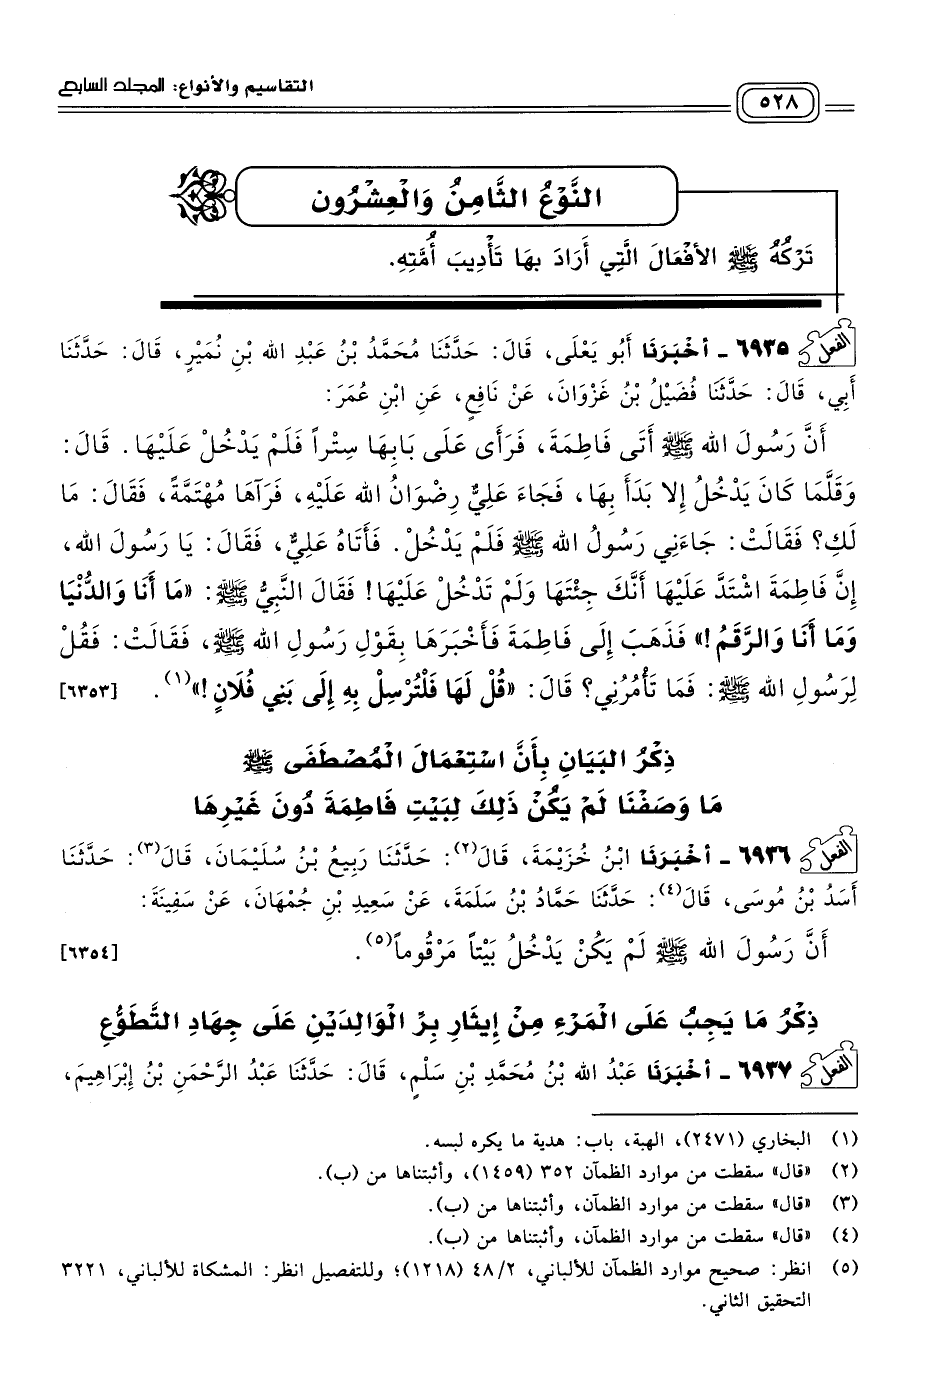 التقاسيم والأنواع: المجلد السابع
٥٢٨
النَّوْعُ الثَّامِنُ وَالْعِشْرُون
تَرْكُهُ ﷺ الأَفْعَالَ الَّتِي أَرَادَ بِهَا تَأْدِيبَ أُمَّتِهِ.
الفعل ٦٩٣٥ ـ أخْبَرَنَا أَبُو يَعْلَى، قَالَ: حَدَّثَنَا مُحَمَّدُ بْنُ عَبْدِ الله بْنِ نُمَيْرٍ، قَالَ: حَدَّثَنَا
أَبِي، قَالَ: حَدَّثَنَا فُضَيْلُ بْنُ غَزْوَانَ، عَنْ نَافِعٍ، عَنِ ابْنِ عُمَرَ:
أَنَّ رَسُولَ الله ﷺ أَتَى فَاطِمَةَ، فَرَأَى عَلَى بَابِهَا سِتْراً فَلَمْ يَدْخُلْ عَلَيْهَا. قَالَ:
وَقَلَّمَا كَانَ يَدْخُلُ إِلا بَدَأَ بِهَا، فَجَاءَ عَلِيٌّ رِضْوَانُ الله عَلَيْهِ، فَرَآهَا مُهْتَمَّةً، فَقَالَ: مَا
لَكِ؟ فَقَالَتْ: جَاءَنِي رَسُولُ الله ﷺ فَلَمْ يَدْخُلْ. فَأَتَاهُ عَلِيٌّ، فَقَالَ: يَا رَسُولَ الله،
إِنَّ فَاطِمَةَ اشْتَدَّ عَلَيْهَا أَنَّكَ جِئْتَهَا وَلَمْ تَدْخُلْ عَلَيْهَا! فَقَالَ النَّبِيُّ ﷺ: «مَا أَنَا وَالدُّنْيَا
وَمَا أَنَا وَالرَّقَمُ!» فَذَهَبَ إِلَى فَاطِمَةَ فَأَخْبَرَهَا بِقَوْلِ رَسُولِ الله ﷺ، فَقَالَتْ: فَقُلْ
لِرَسُولِ الله ﷺ: فَمَا تَأْمُرُنِي؟ قَالَ: «قُلْ لَهَا فَلْتُرْسِلْ بِهِ إِلَى بَنِي فُلَانٍ!»(١). [٦٣٥٣]
ذِكْرُ البَيَانِ بِأَنَّ اسْتِعْمَالَ الْمُصْطَفَى ﷺ
مَا وَصَفْنَا لَمْ يَكُنْ ذَلِكَ لِبَيْتِ فَاطِمَةَ دُونَ غَيْرِهَا
الفعل ٦٩٣٦ ـ أخْبَرَنَا ابْنُ خُزَيْمَةَ، قَالَ(٢): حَدَّثَنَا رَبِيعُ بْنُ سُلَيْمَانَ، قَالَ(٣): حَدَّثَنَا
أَسَدُ بْنُ مُوسَى، قَالَ(٤): حَدَّثَنَا حَمَّادُ بْنُ سَلَمَةَ، عَنْ سَعِيدِ بْنِ جُمْهَانَ، عَنْ سَفِينَةَ:
أَنَّ رَسُولَ الله ﷺ لَمْ يَكُنْ يَدْخُلُ بَيْتاً مَرْقُوماً(٥). [٦٣٥٤]
ذِكْرُ مَا يَجِبُ عَلَى الْمَرْءِ مِنْ إِيثَارِ بِرِّ الْوَالِدَيْنِ عَلَى جِهَادِ التَّطَوُّعِ
الفعل ٦٩٣٧ ـ أخْبَرَنَا عَبْدُ الله بْنُ مُحَمَّدِ بْنِ سَلْمٍ، قَالَ: حَدَّثَنَا عَبْدُ الرَّحْمَنِ بْنُ إِبْرَاهِيمَ،
(١) البخاري (٢٤٧١)، الهبة، باب: هدية ما يكره لبسه.
(٢) «قال» سقطت من موارد الظمآن ٣٥٢ (١٤٥٩)، وأثبتناها من (ب).
(٣) «قال» سقطت من موارد الظمآن، وأثبتناها من (ب).
(٤) «قال» سقطت من موارد الظمآن، وأثبتناها من (ب).
(٥) انظر: صحيح موارد الظمآن للألباني، ٤٨/٢ (١٢١٨)؛ وللتفصيل انظر: المشكاة للألباني، ٣٢٢١
التحقيق الثاني.